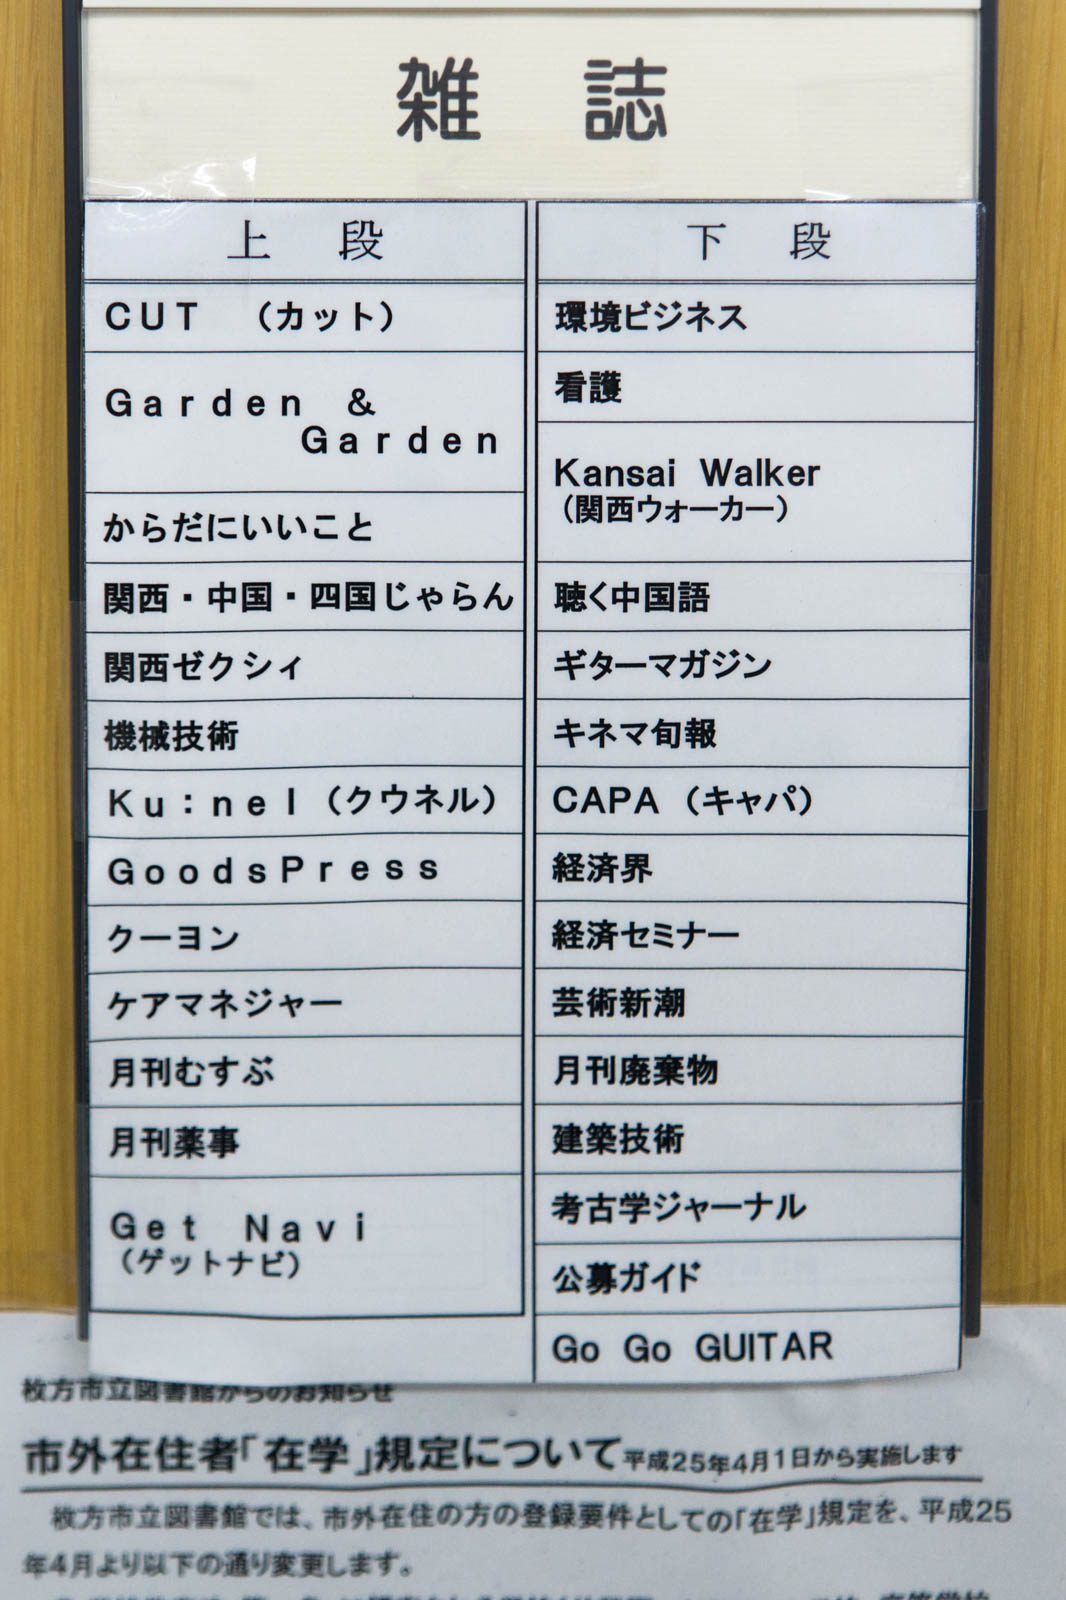 雑誌
上段
CUT （カット）
Garden &
Garden
からだにいいこと
関西・中国・四国じゃらん
関西ゼクシィ
機械技術
Ku:nel（クウネル）
GoodsPress
クーヨン
ケアマネジャー
月刊むすぶ
月刊薬事
Get Navi
（ゲットナビ）
下段
環境ビジネス
看護
Kansai Walker
（関西ウォーカー）
聴く中国語
ギターマガジン
キネマ旬報
CAPA （キャパ）
経済界
経済セミナー
芸術新潮
月刊廃棄物
建築技術
考古学ジャーナル
公募ガイド
Go Go GUITAR
枚方市立図書館からのお知らせ
市外在住者「在学」規定について 平成25年4月1日から実施します
枚方市立図書館では、市外在住の方の登録要件としての「在学」規定を、平成25
年4月より以下の通り変更します。